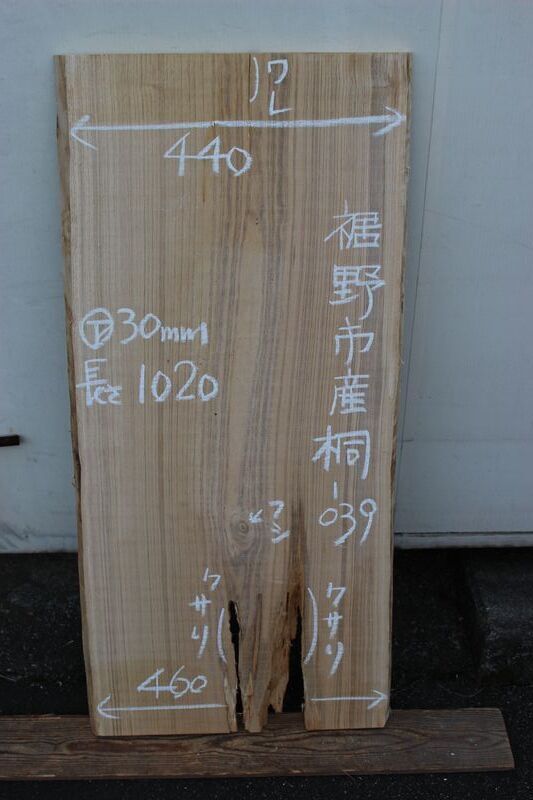 ワレ
440
裾野市産桐-039
㋐30mm
長さ1020
フシ
クサリ
クサリ
460